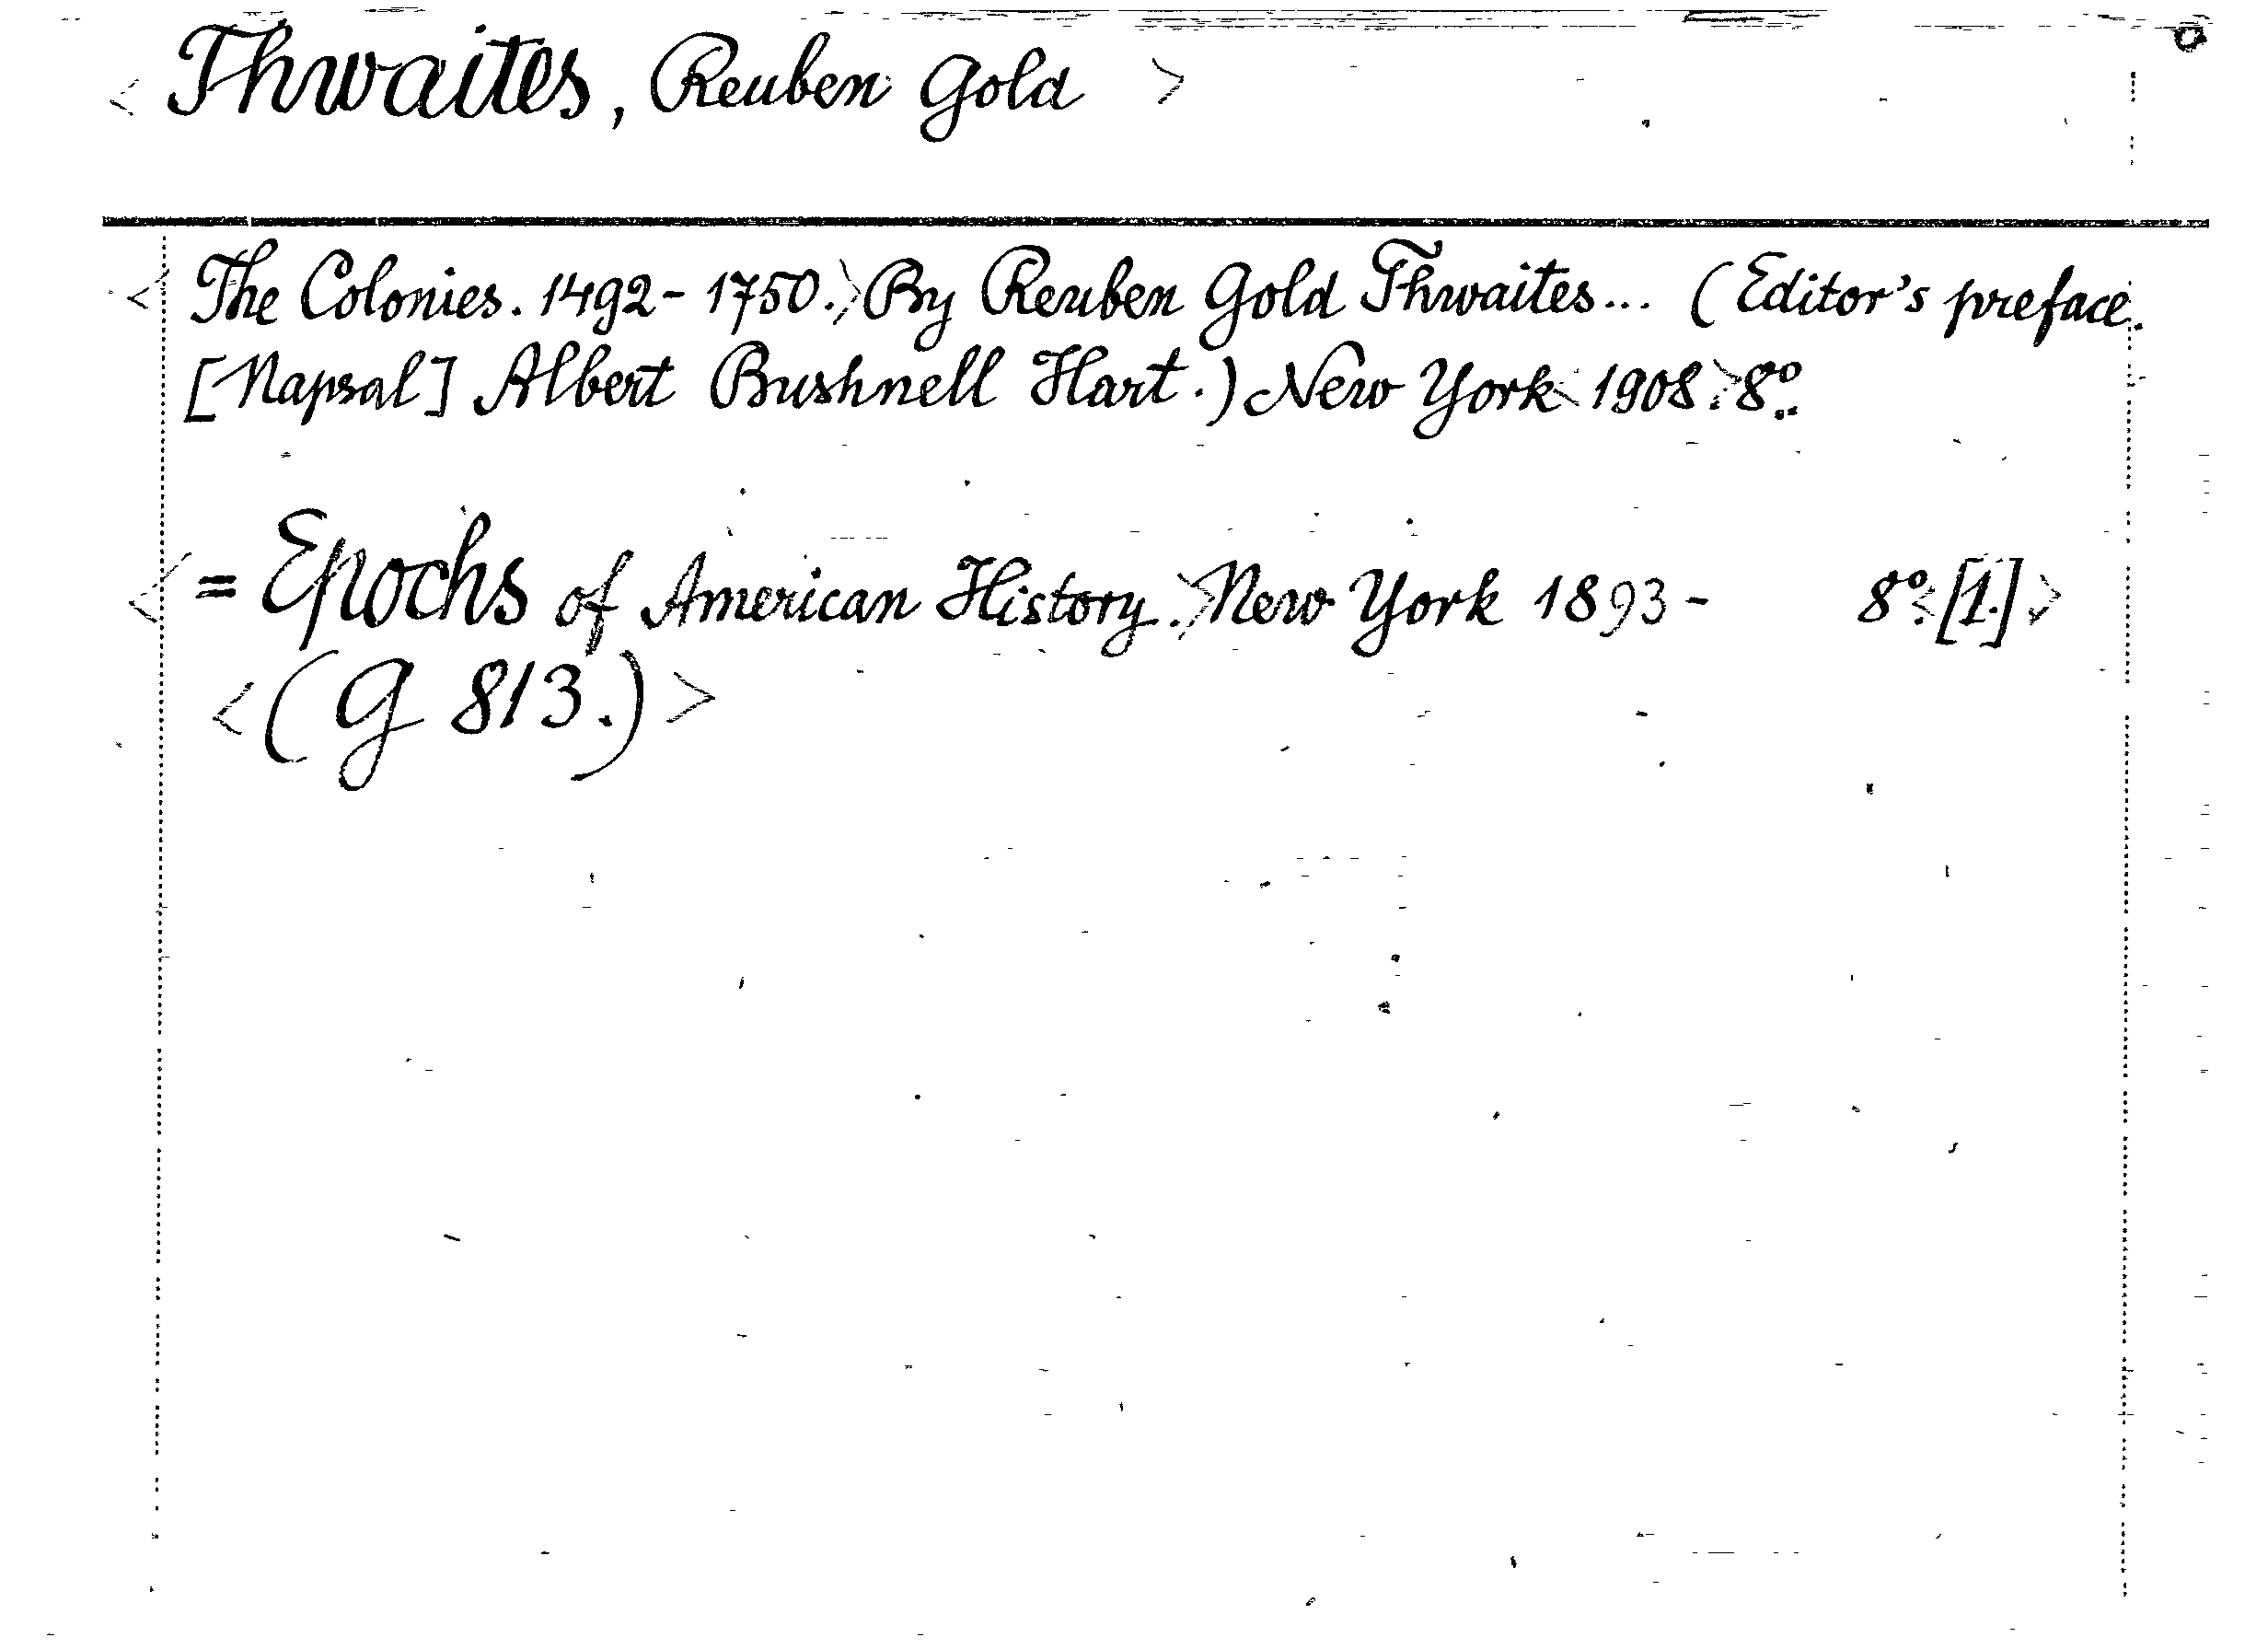 < Thwaites, Reuben Gold >
< The Colonies. 1492-1750.> By Reuben Gold Thwaites... (Editor's preface.
[Napsal] Albert Bushnell Hart.) New York < 1908.> 8°.
< = Epochs of American History.> New York 1893- 8°. < [1.] >
< (G 813.) >